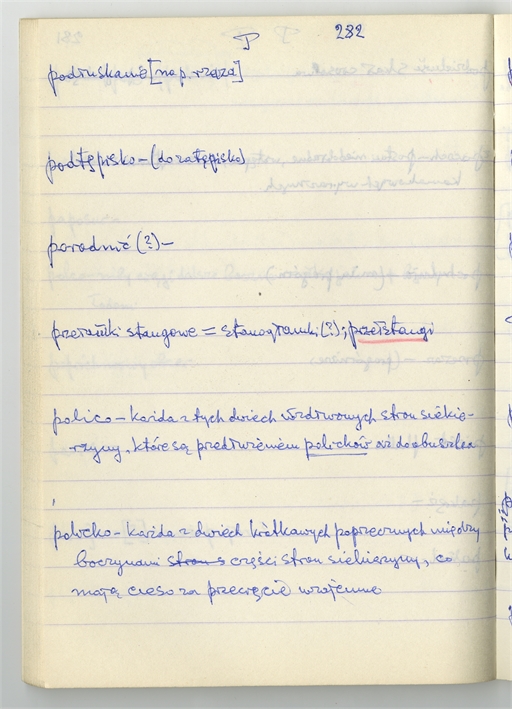 P 282
podruskanie [nap. rzaza]
podtępisko – (do zatępisko)
poradnić (?) –
przetaniki stangowe = stanogramki (?); przełstangi
polico – każda z tych dwiech wzdłwonych stron siekie-
rzyny, które są przedłużeniem policków aż do obuszka
policko – każda z dwiech krótkawych poprzecznych między
boczynami stron s części stron siekierzyny, co
mają cieso za przecięcie wzajemne